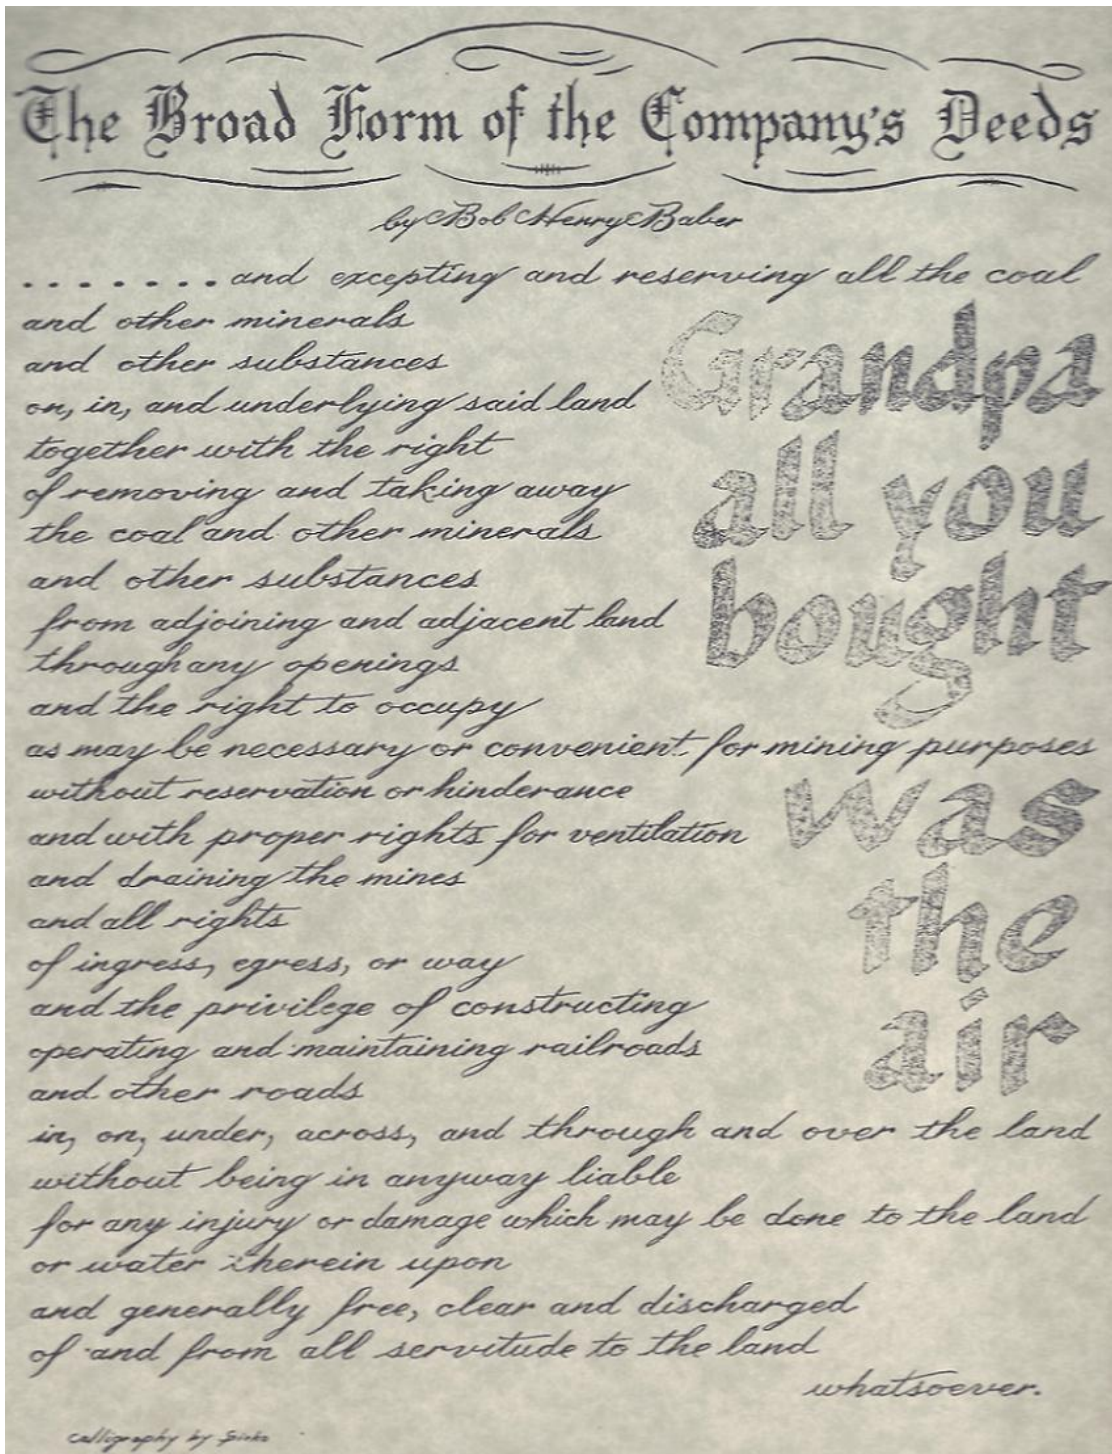 The Broad Form of the Company's Deeds
by Bob Henry Baber
. . . . . . . . and excepting and reserving all the coal
and other minerals
and other substances
on, in, and underlying said land
Grandpa
together with the right
of removing and taking away
all you
the coal and other minerals
and other substances
from adjoining and adjacent land
bought
through any openings
and the right to occupy
as may be necessary or convenient for mining purposes
without reservation or hinderance
was
and with proper rights for ventilation
and draining the mines
and all rights
the
of ingress, egress, or way
and the privilege of constructing
operating and maintaining railroads
air
and other roads
in, on, under, across, and through and over the land
without being in anyway liable
for any injury or damage which may be done to the land
or water therein upon
and generally free, clear and discharged
of and from all servitude to the land
whatsoever.
Calligraphy by